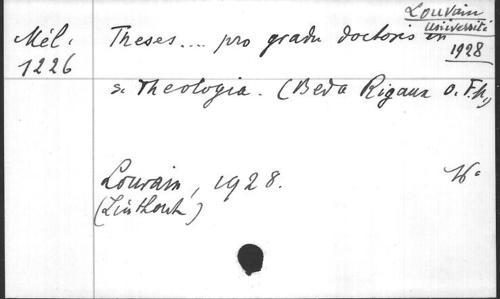 Louvain
Université
1928
Mél.
1226
Theses .... pro gradu doctoris in
s. Theologia. (Beda Rigaux O.F.M.)
Louvain, 1928.
(Linthout)